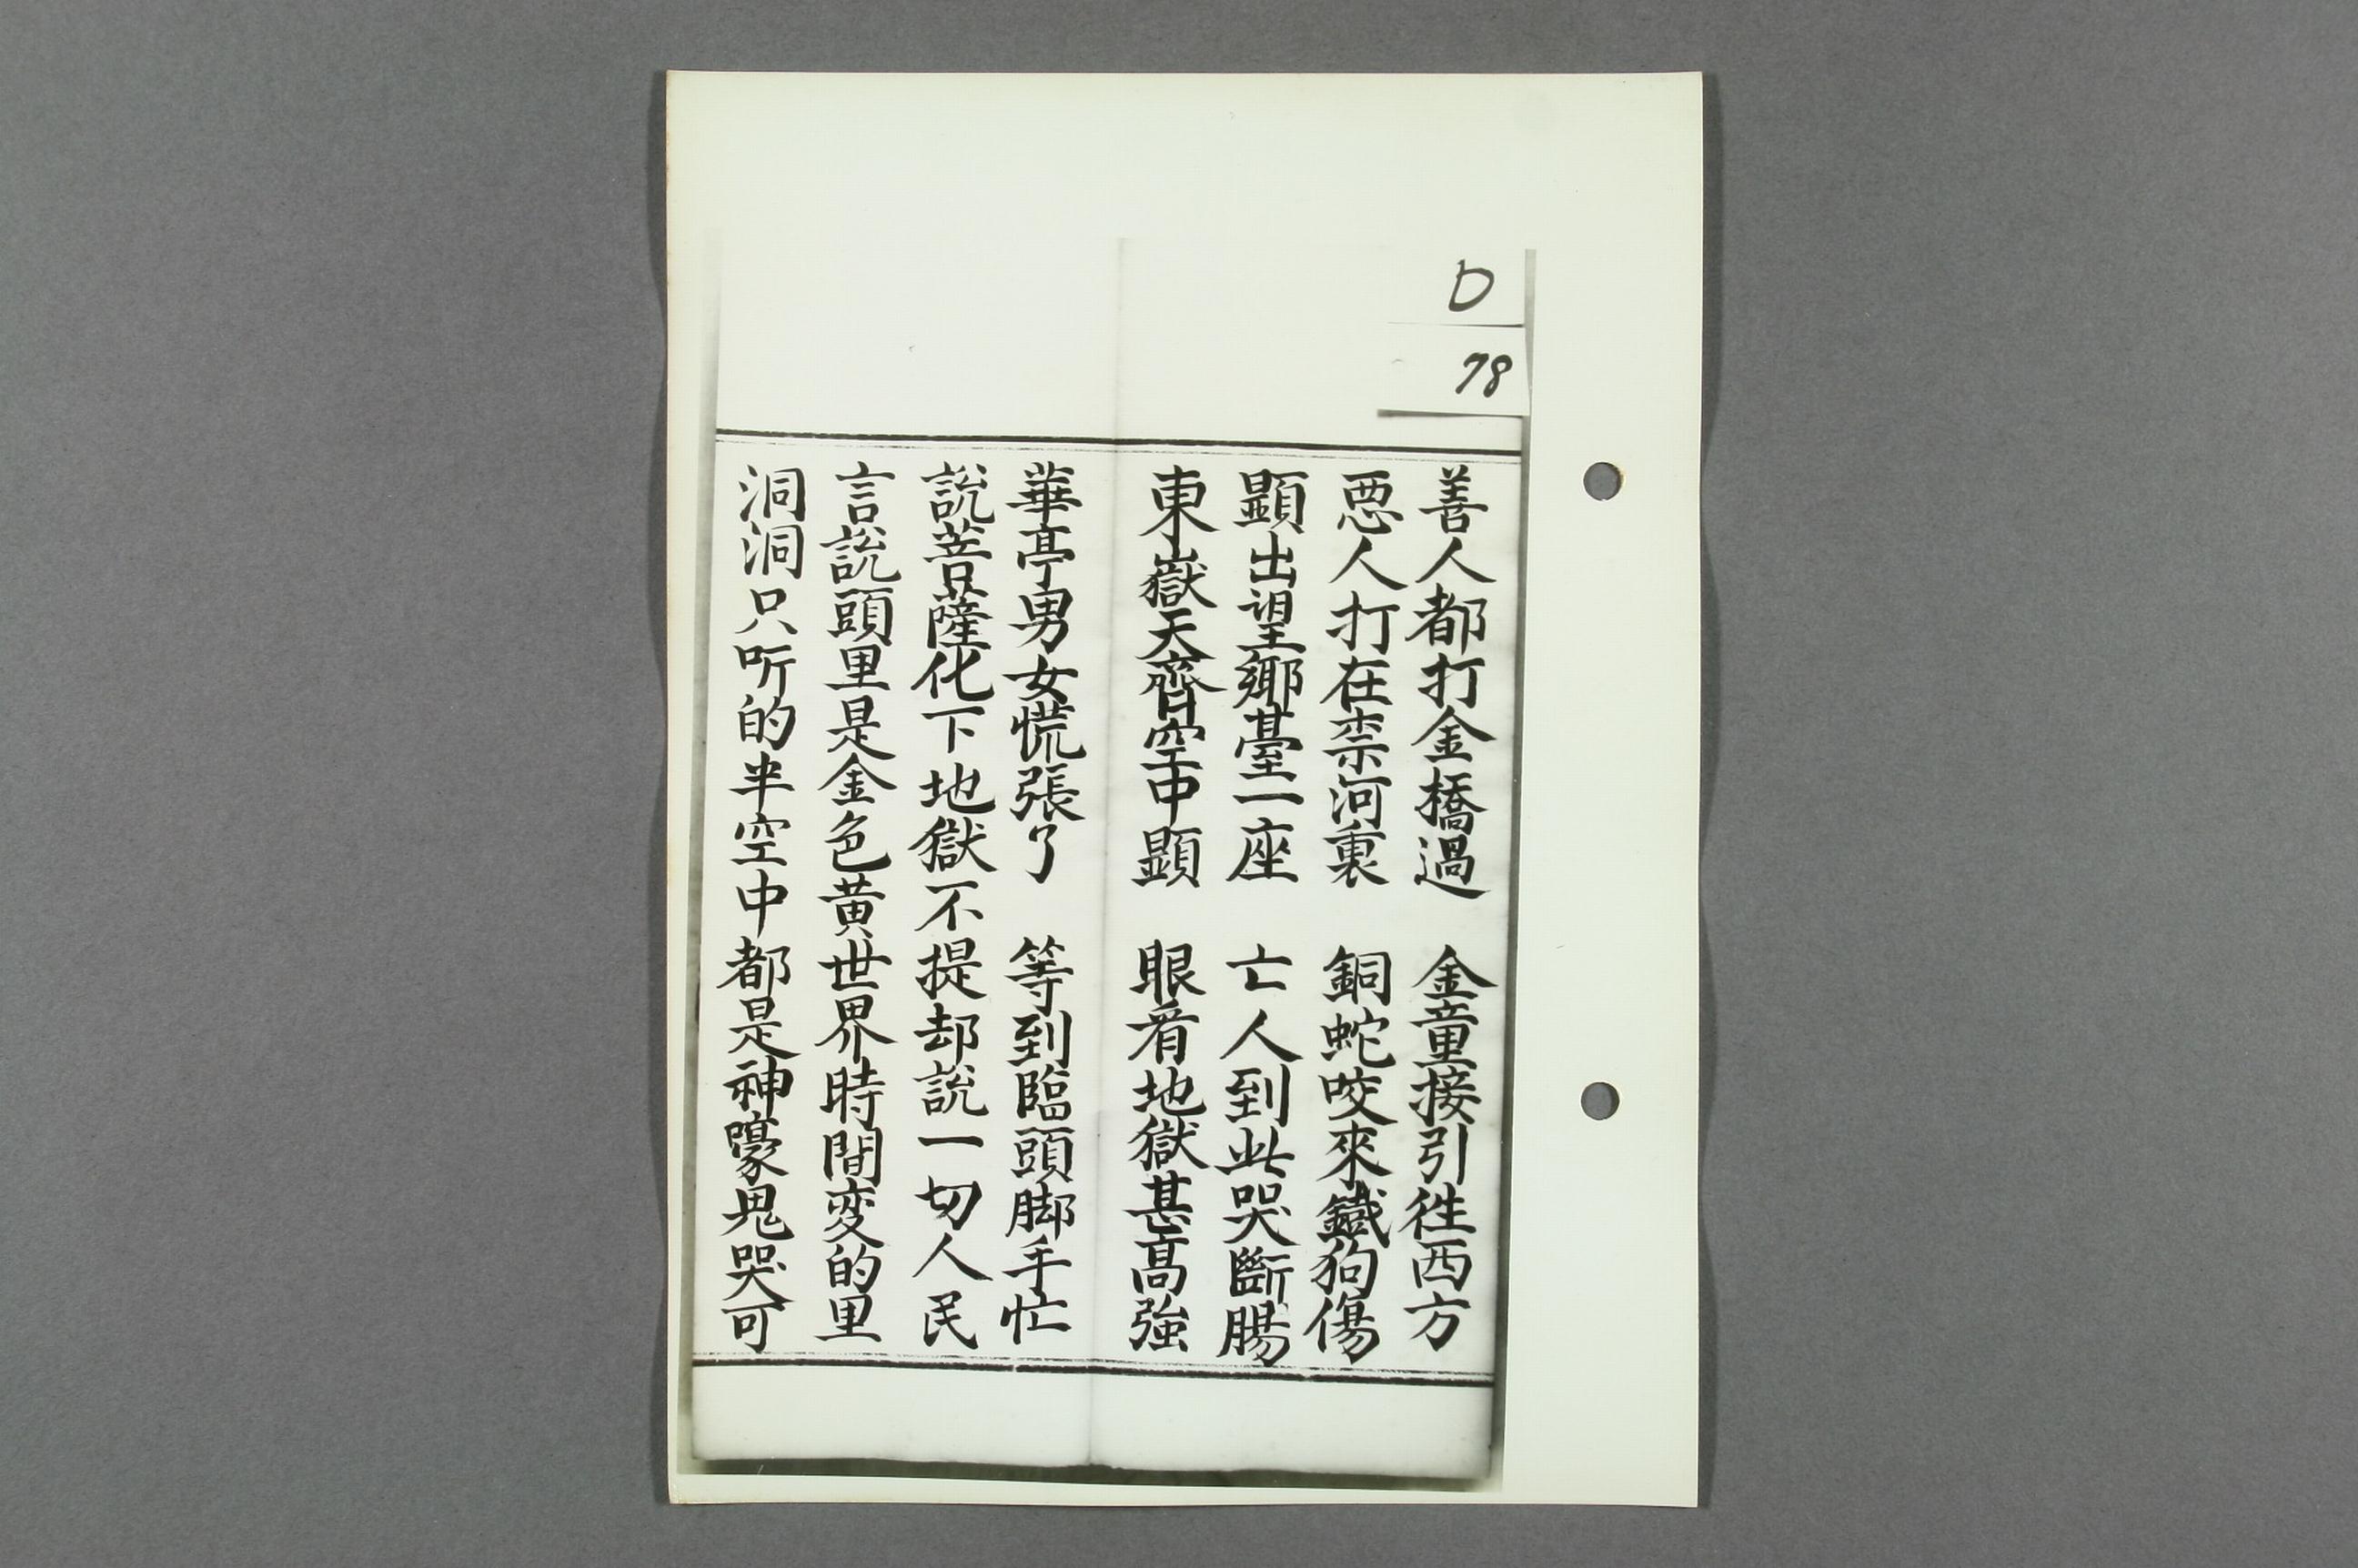 D
78
善人都打金橋過　金童接引徃西方
悪人打在柰河裏　銅蛇咬來鐵狗傷
顕出望鄉臺一座　亡人到此哭斷腸
東嶽天齊空中顕　眼看地獄甚高強
華亭男女慌張了　等到臨頭脚手忙
説菩薩化下地獄不提却説一切人民
言說頭里是金色黄世界時間変的里
洞洞只听的半空中都是神嚎鬼哭可